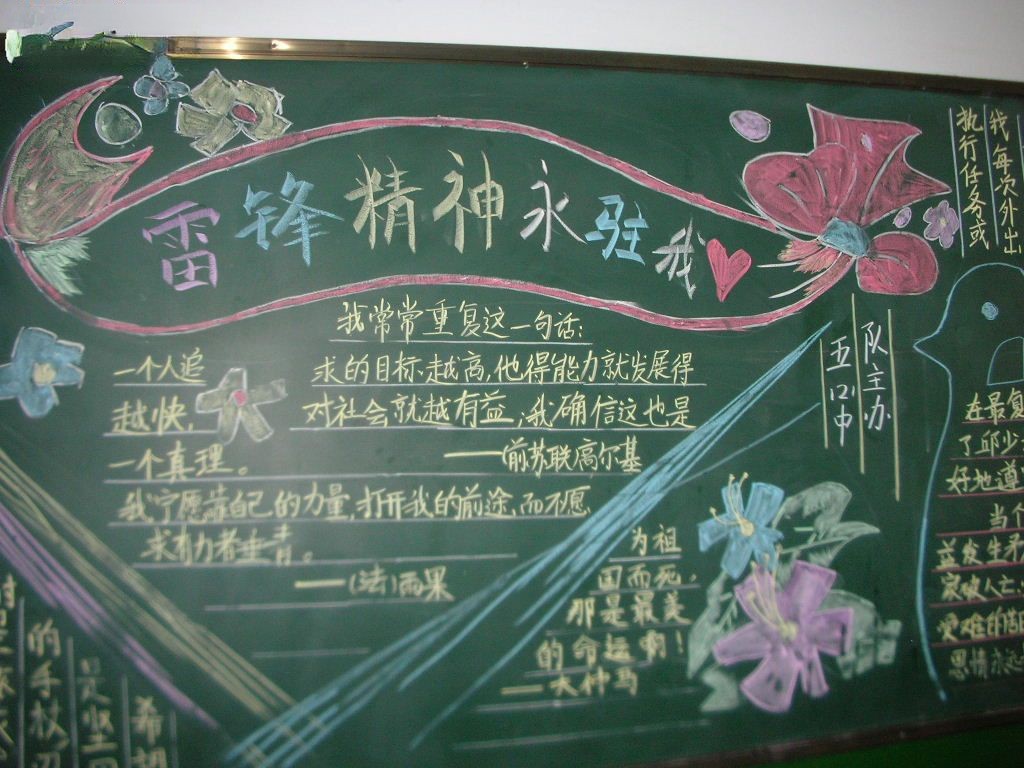 雷锋精神永驻我
我常常重复这一句话:
一个人追求的目标越高,他得能力就发展得
越快,对社会就越有益,我确信这也是
一个真理。——(前苏联)高尔基
我宁愿靠自己的力量,打开我的前途,而不愿
求有力者垂青。
——(法)雨果
为祖
国而死,
那是最美
的命运啊!
——大仲马
五中
队主办
我每次外出
执行任务或
在最复
了邱少
好地道
当个
盛发生矛
家破人亡
更难的
恩情永远
的手杖
是坚
希望